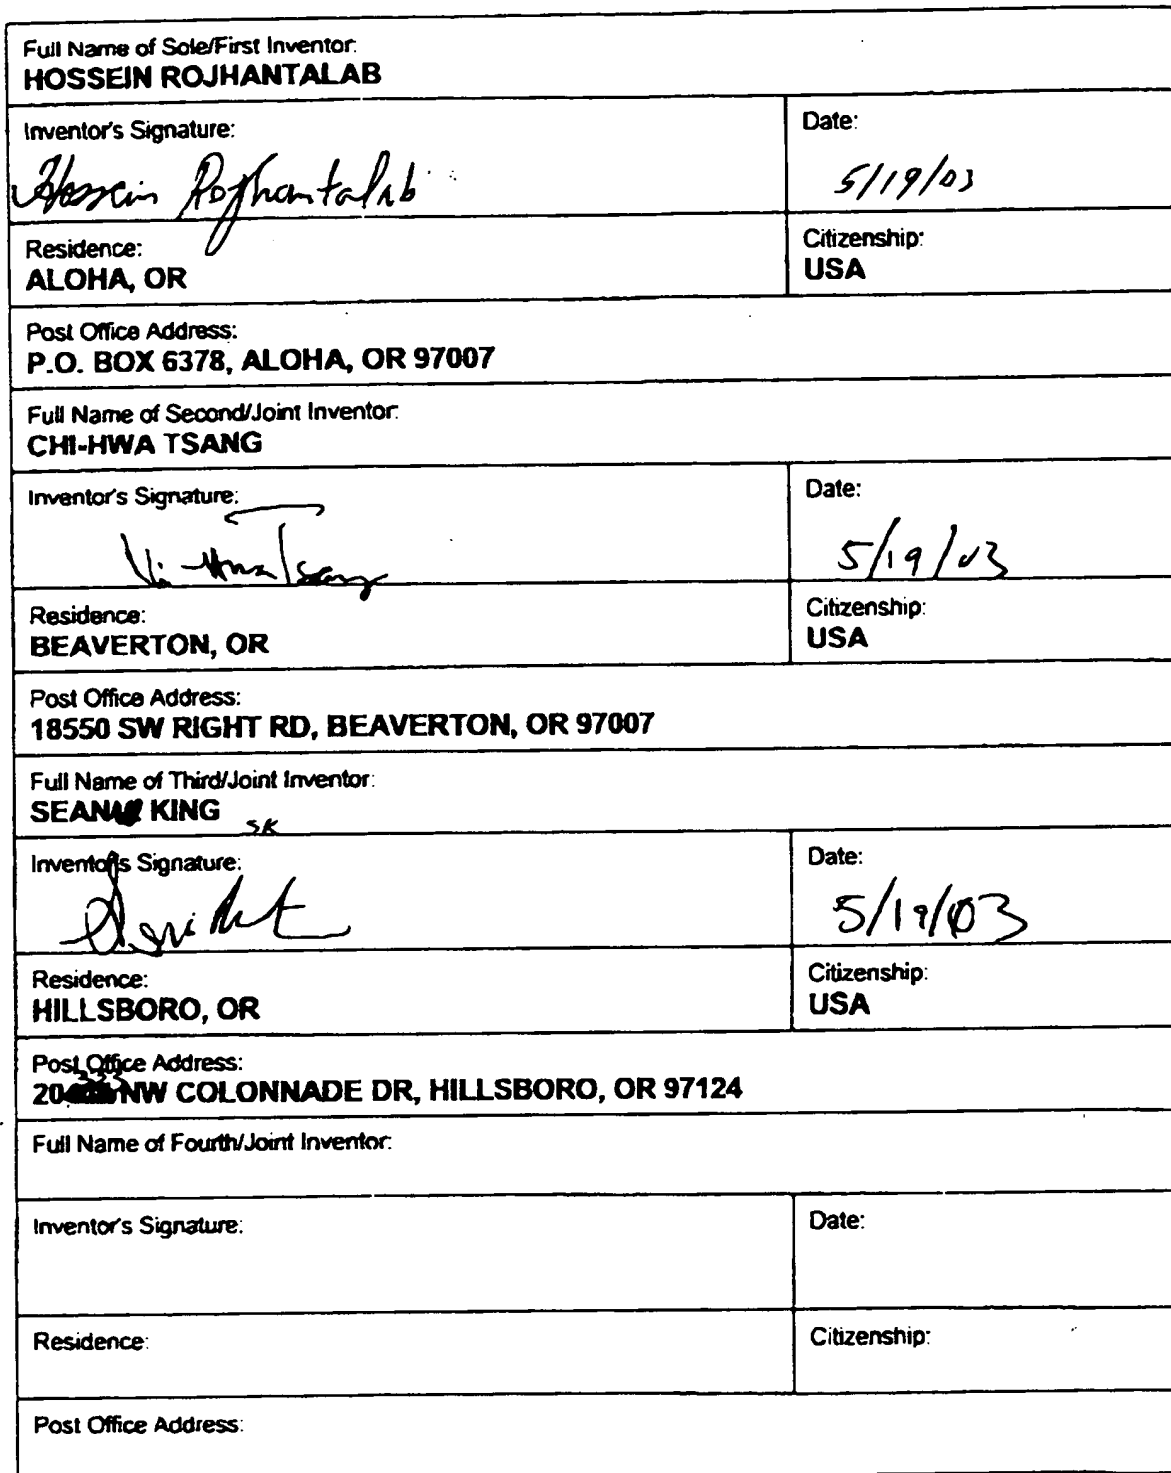 Full Name of Sole/First Inventor:
HOSSEIN ROJHANTALAB
Inventor's Signature:
Date:
Hossein Rojhantalab
5/19/03
Residence:
Citizenship:
ALOHA, OR
USA
Post Office Address:
P.O. BOX 6378, ALOHA, OR 97007
Full Name of Second/Joint Inventor:
CHI-HWA TSANG
Inventor's Signature:
Date:
Chi-Hwa Tsang
5/19/03
Residence:
Citizenship:
BEAVERTON, OR
USA
Post Office Address:
18550 SW RIGHT RD, BEAVERTON, OR 97007
Full Name of Third/Joint Inventor:
SEAN KING
SK
Inventor's Signature:
Date:
5/19/03
Residence:
Citizenship:
HILLSBORO, OR
USA
Post Office Address:
20 333 NW COLONNADE DR, HILLSBORO, OR 97124
Full Name of Fourth/Joint Inventor:
Inventor's Signature:
Date:
Residence:
Citizenship:
Post Office Address: